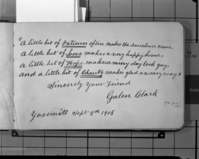 "A little bit of Patience often makes the sunshine come
A little bit of Love makes a very happy home;
A little bit of Hope makes a rainy day look gay,
And a little bit of Charity makes glad a weary way."
Sincerely Your Friend
Galen Clark
Yosemite Sept. 9th 1905